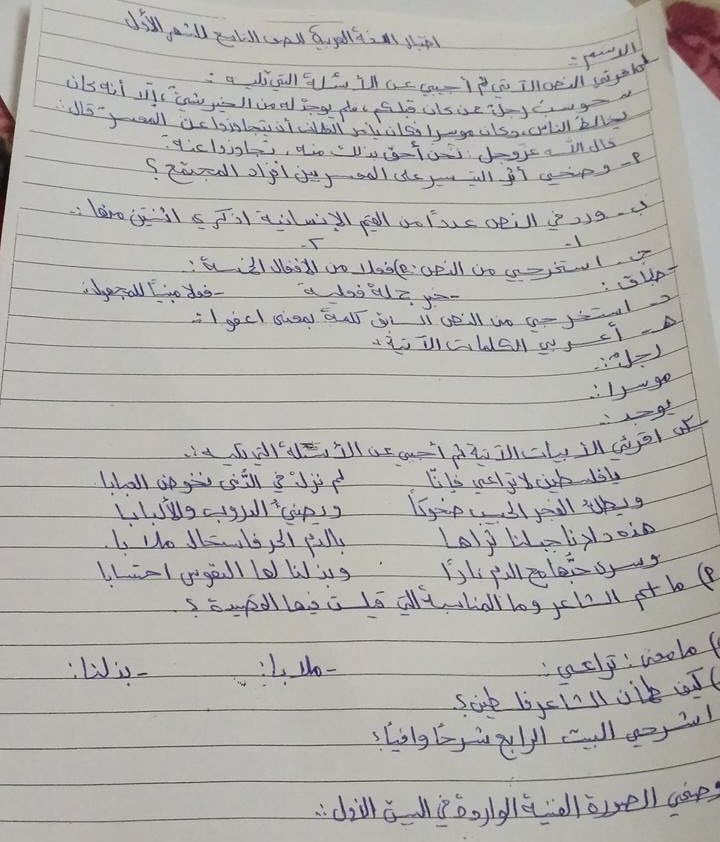 اختبار اللغة العربية الصف التاسع للشهر الأول
الاسم :
اقرئي النص الآتي ثم أجيبي عن الأسئلة التي تليه :
حوسب رجل ممن كان قبلكم، فلم يوجد له من الخير شيء، إلا أنه كان
يخالط الناس، وكان موسرا فكان يأمر الغلمان أن يتجاوزوا عن المعسر" قال:
قال الله عز وجل: نحن أحق بذلك منه، تجاوزوا عنه.
٩- وضحي أثر التيسير على المعسر بين أفراد المجتمع ؟
ب- ورد في النص عدداً من القيم الإنسانية اذكري اثنتين منها :.
١- ٢-
ج- استخرجي من النص: ٩) فعلا من الأفعال الخمسة :
- طباق : - خبر جملة فعلية - فعلا مبنياً للمجهول :
د- استخرجي من النص السابق كلمة بمعنى اعفوا :.
هـ- أعربي الكلمات الآتية :
رجلٌ :.
موسرا :.
يوجد :.
اقرئي الأبيات الآتية ثم أجيبي عن الأسئلة التي تليه :.
يا فلسطين لا تراعي فإنّا لم نزلْ في الدُّنى نخوض الصعابا
ويطلّ الفجر الحبيب ضحوكاً ويضيءُ الدروب والألبابا
هذه دلادنا جبلنا ثراها بالدم الحر فاستحال ملابا.
وسرى حبُّها مع الدم نارًا وبذلنا لها النفوس احتسابا
٩) ما اسم الشاعر وما المناسبة التي قيلت فيها القصيدة ؟
ما معنى : تراعي : - ملابا : - بذلنا :
كيف طمأن الشاعر فلسطين؟
اشرحي البيت الرابع شرحًا وافياً؟
وضحي الصورة الفنية الواردة في البيت الأول :.